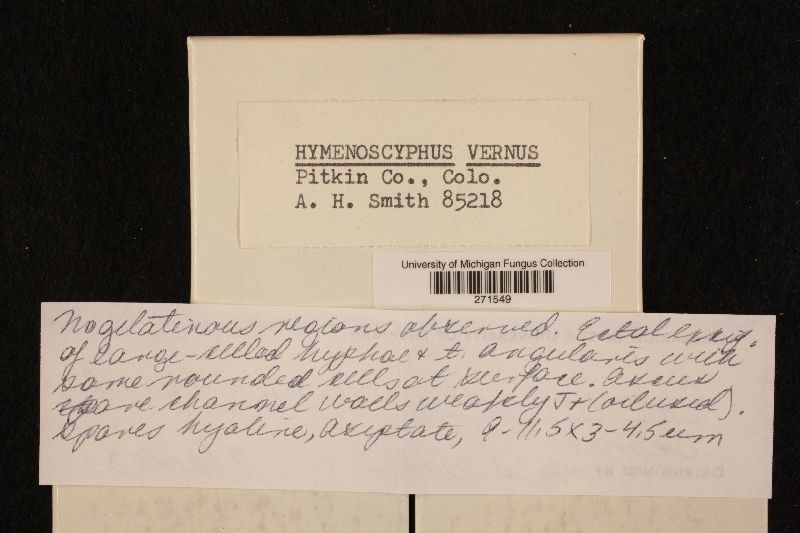 HYMENOSCYPHUS VERNUS
Pitkin Co., Colo.
A. H. Smith 85218
University of Michigan Fungus Collection
271549
No gelatinous regions observed. Ectal excip.
of large-celled hyphae & t. angularis with
some rounded cells at surface. Ascus
pore channel walls weakly J+ (
Spores hyaline, aseptate, 9-11.5 X 3-4.5 um
DETERMINED BY